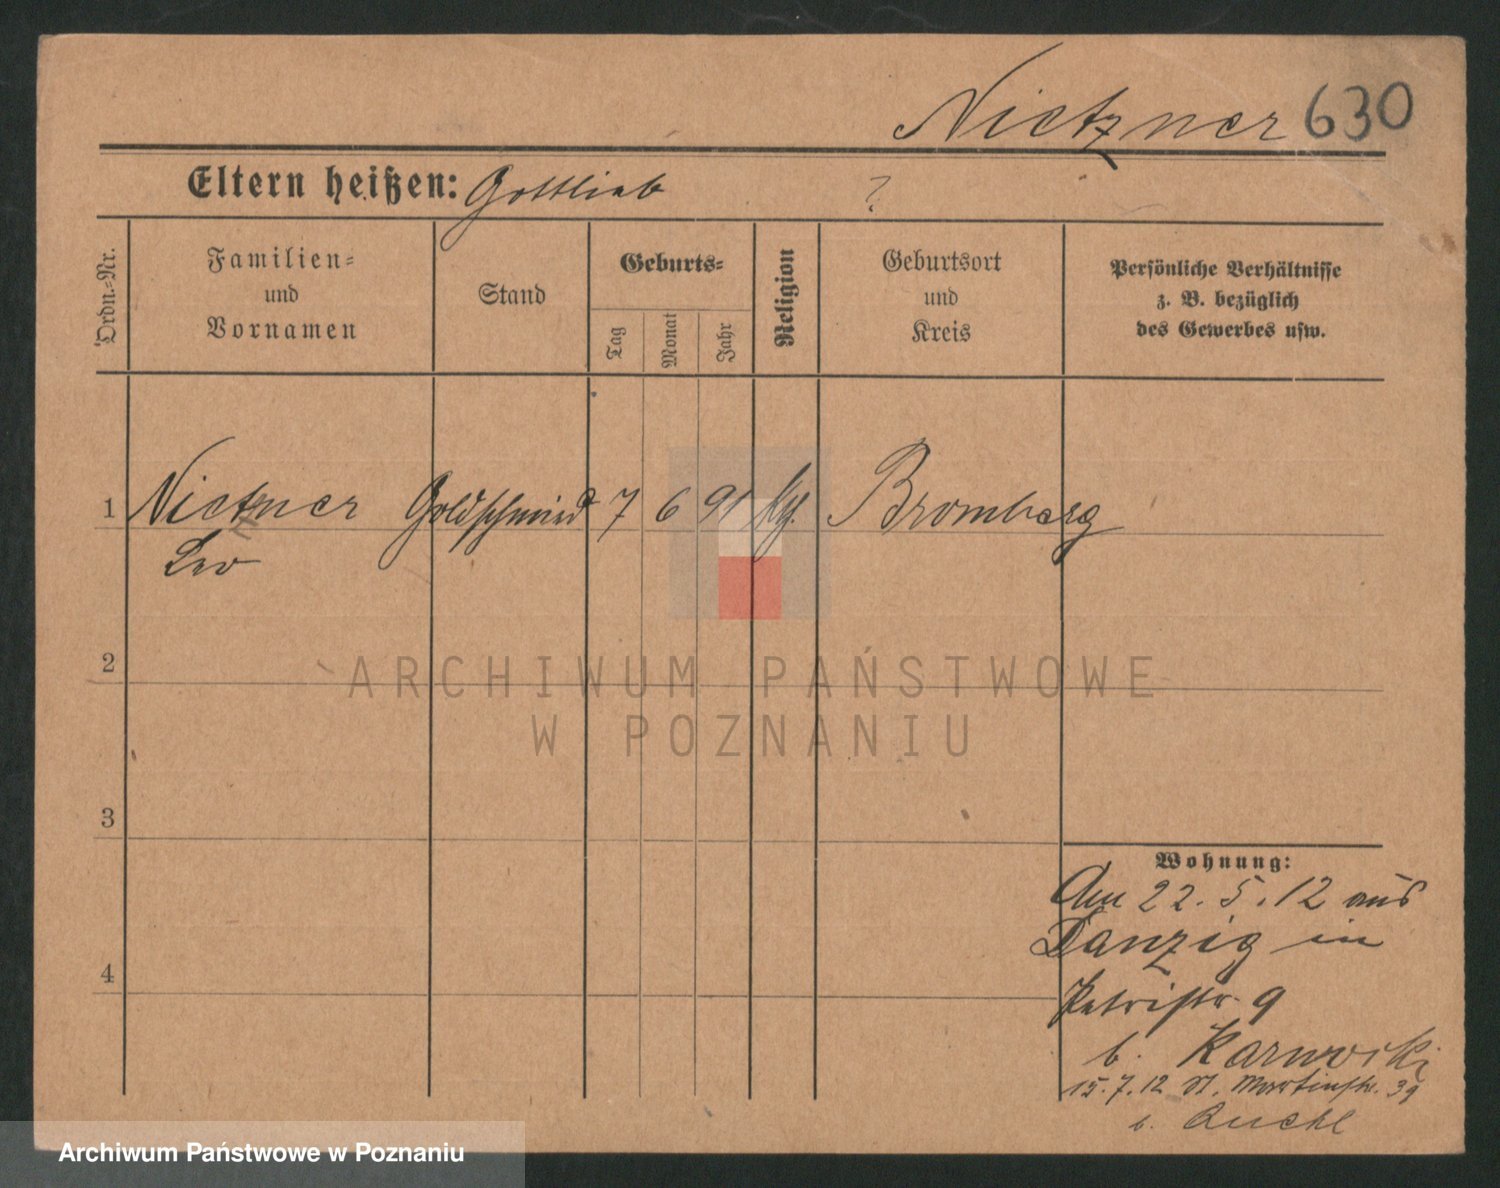 Nietzner 630
Eltern heißen: Gottlieb ?
Ordn.-Nr.
Familien-
und
Vornamen
Stand
Geburts-
Tag
Monat
Jahr
Religion
Geburtsort
und
Kreis
Persönliche Verhältnisse
z. B. bezüglich
des Gewerbes usw.
1 Nietzner Goldschmied 7 6 91 Bromberg
Leo
2
3
4
Wohnung:
Am 22.5.12 aus
Danzig in
Petristr. 9
b. Karwocki
15.7.12 St. Martinstr. 39
b.
ARCHIWUM PAŃSTWOWE
W POZNANIU
Archiwum Państwowe w Poznaniu